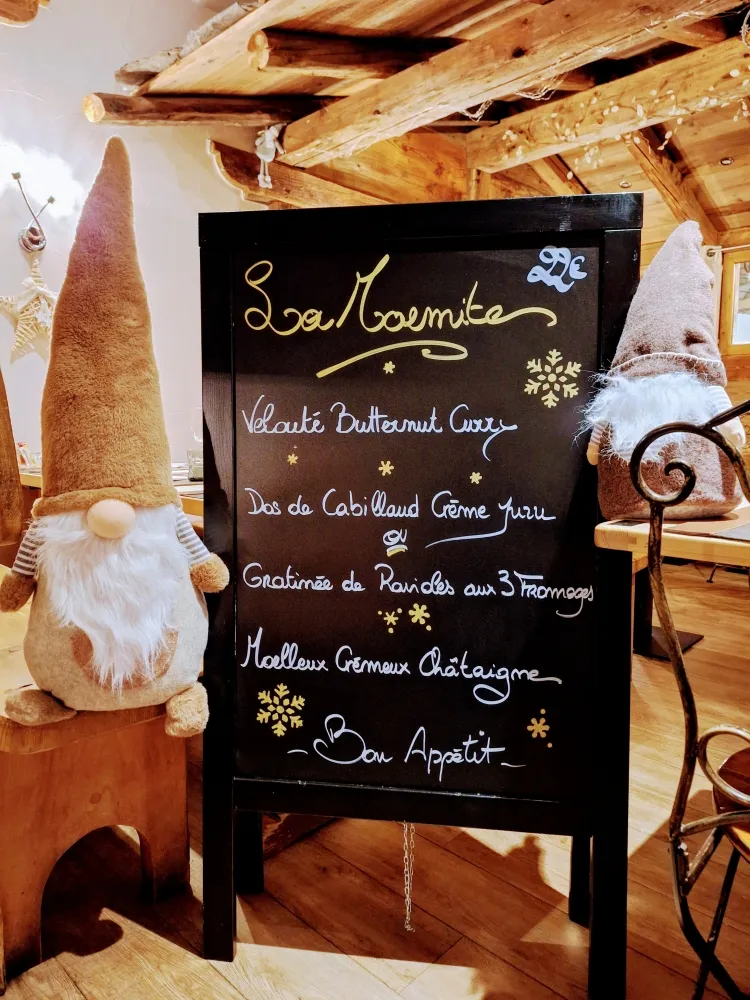 La Marmite
Velouté Butternut Curry
Dos de Cabillaud Crème yuzu
ou
Gratinée de Ravioles aux 3 Fromages
Moelleux Crémeux Châtaigne
Bon Appétit